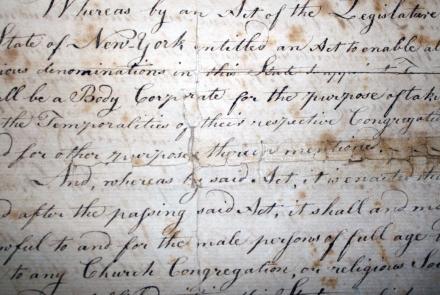 Whereas by an Act of the Legislature
State of New York entitles an Act to enable al
ious denominations in this State
all be a Body Corporate for the purpose of taki
the Temporalities of their respective Congregatio
d for other purposes therein mentioned
And, whereas by said Act, it is enacted tha
d after the passing said Act, it shall and m
wful to and for the male persons of full age
to any Church Congregation, or religious Soc